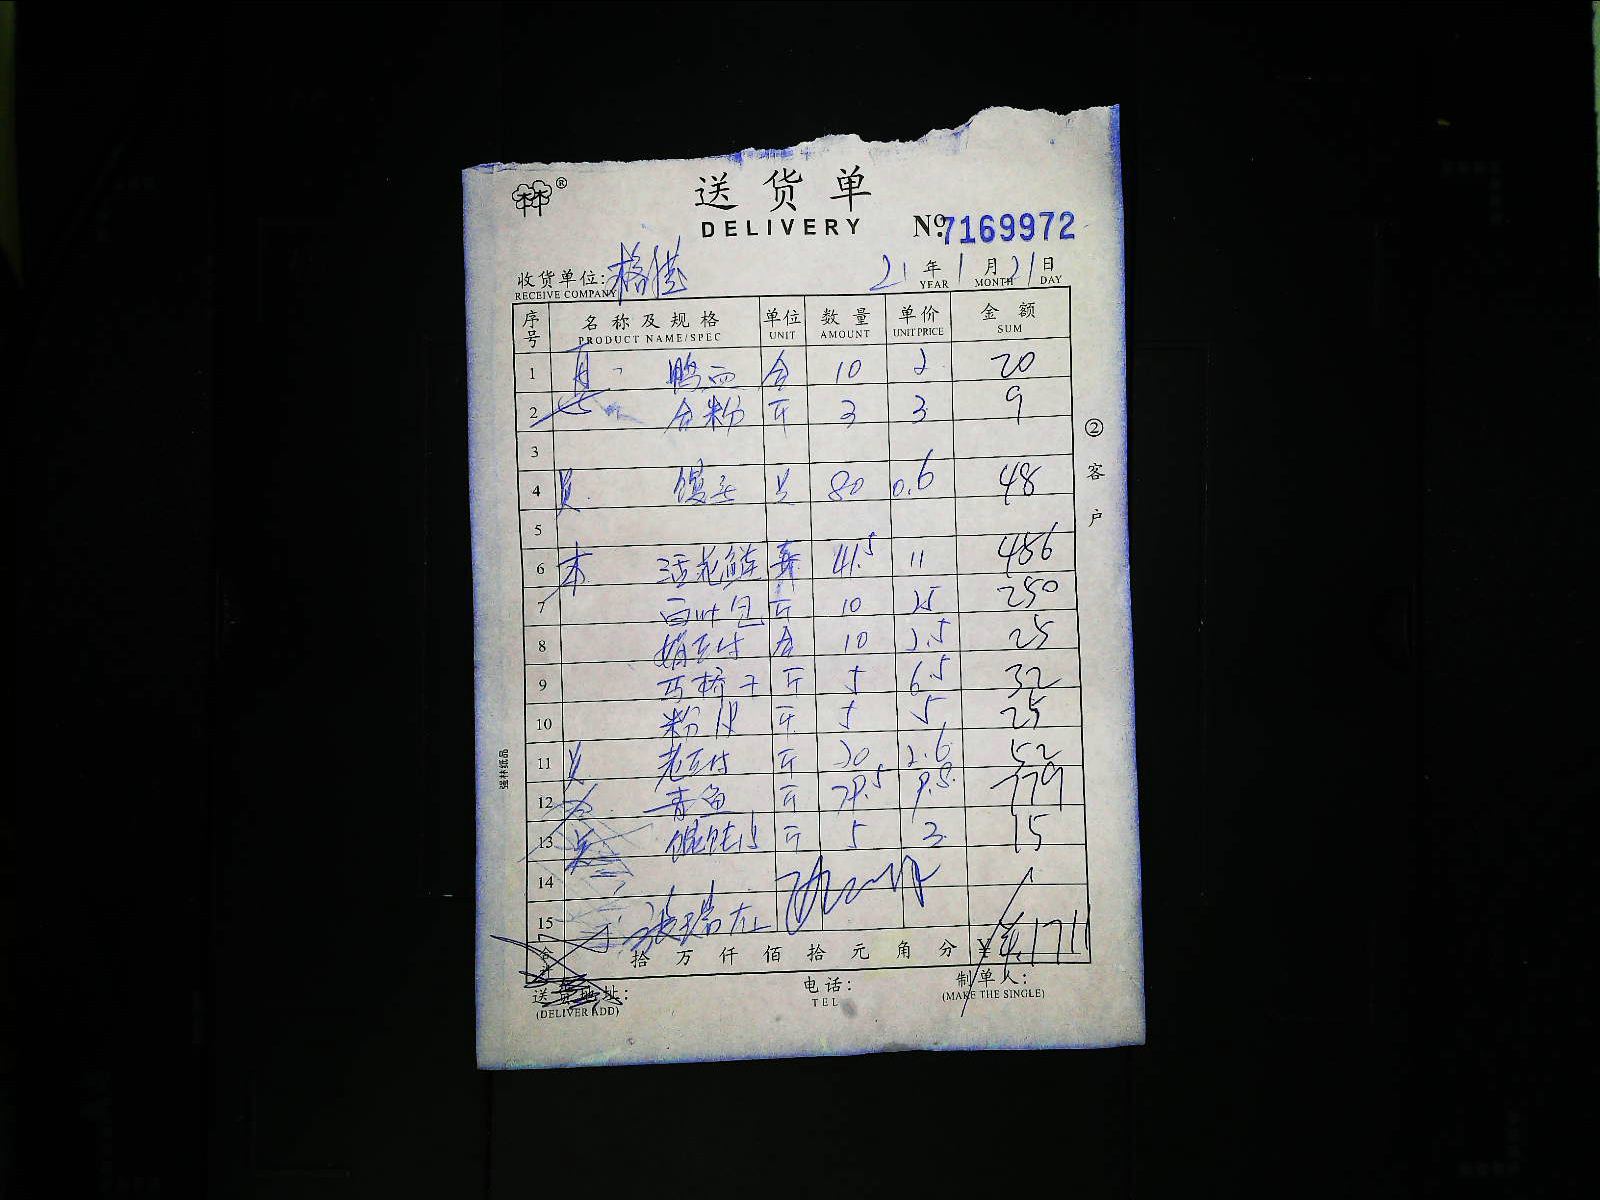 林® 送货单
DELIVERY No. 7169972
收货单位: 21年1月21日
RECEIVE COMPANY YEAR MONTH DAY
序号 名称及规格 单位 数量 单价 金额
PRODUCT NAME/SPEC UNIT AMOUNT UNIT PRICE SUM
1 鸭血 合 10 2 20
2 合粉 斤 3 3 9
3
4 馒头 只 80 0.6 48
5
6 活花鲢 41.5 11 456
7 百叶包 斤 10 25 250
8 娟豆付 合 10 2.5 25
9 马桥干 斤 5 6.5 32
10 粉皮 斤 5 5 25
11 老豆付 斤 20 2.6 52
12 青鱼 斤 9.5 779
13 馄饨皮 斤 5 3 15
14
15
合计 拾万仟佰拾元角分 ¥
送货地址: 电话: 制单人:
(DELIVER ADD) TEL (MAKE THE SINGLE)
②客户
强林纸品